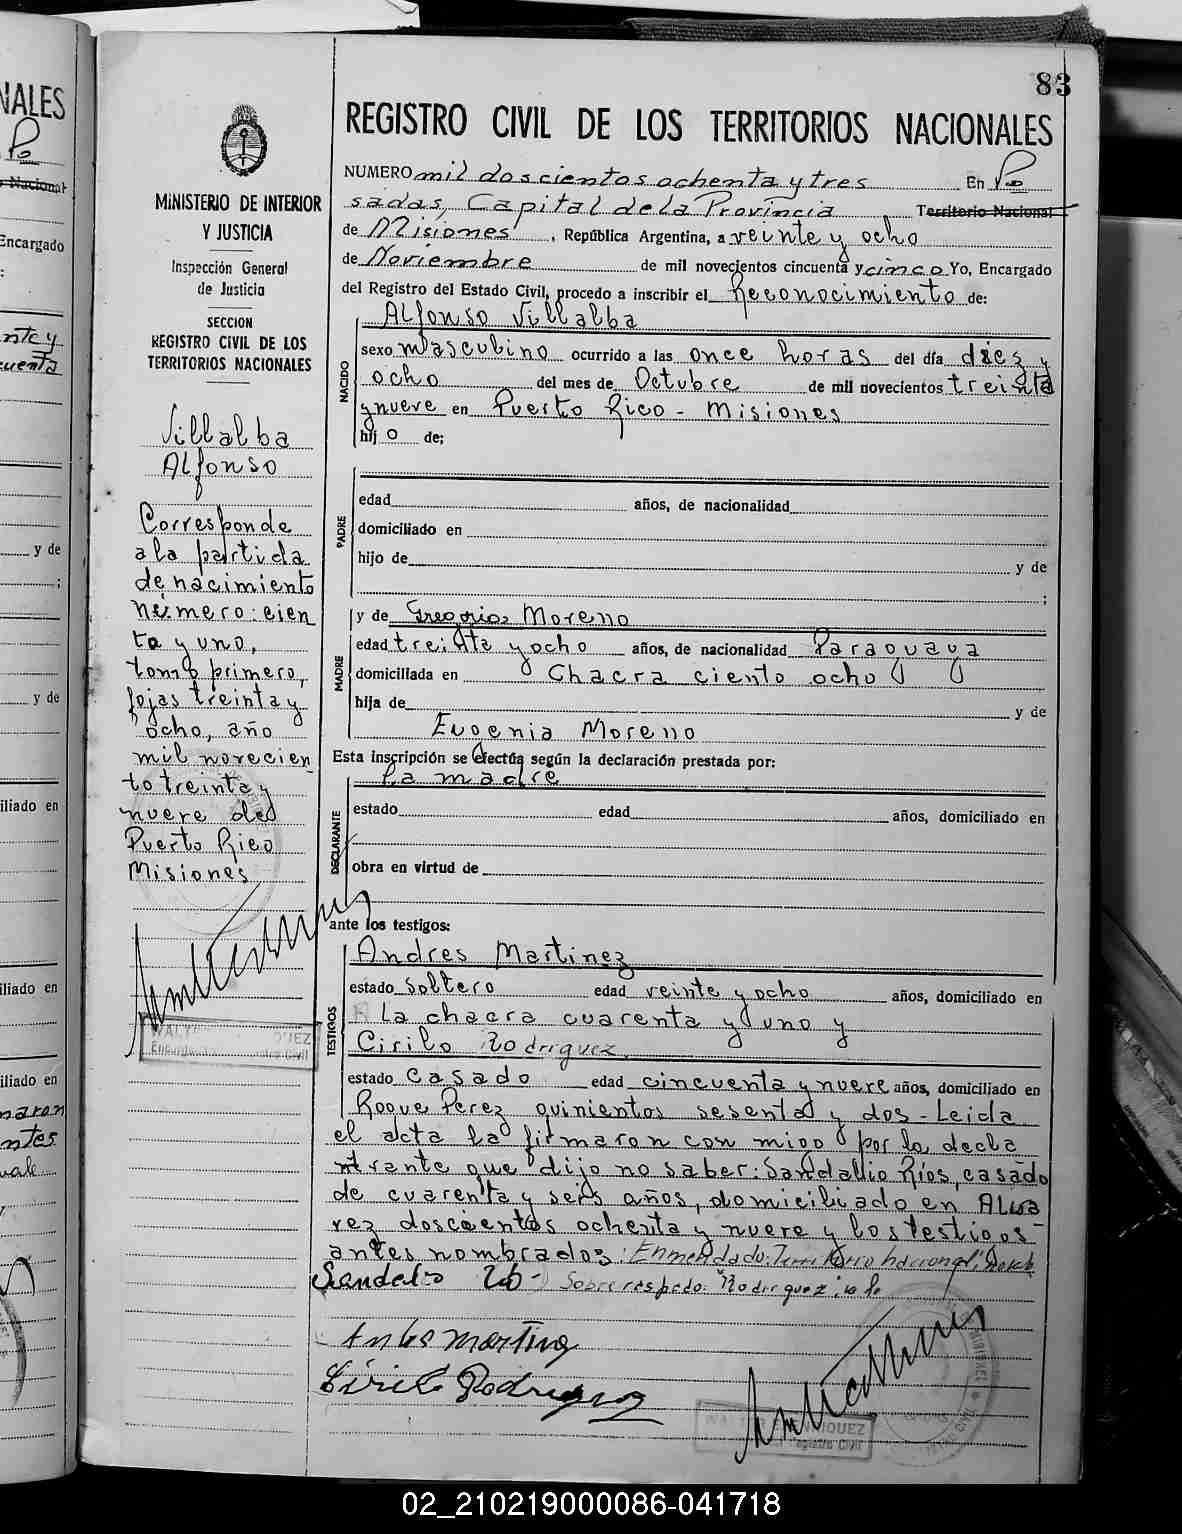 NALES
Po
Nacional
Encargado
:
nte y
cuenta
y de
;
y de
iliado en
iliado en
iliado en
naron
ntes
vale
83
MINISTERIO DE INTERIOR
Y JUSTICIA
Inspección General
de Justicia
SECCION
REGISTRO CIVIL DE LOS
TERRITORIOS NACIONALES
Villalba
Alfonso
Corresponde
a la partida
de nacimiento
número: cien
ta y uno,
tomo primero,
fojas treinta y
ocho, año
mil novecien
to treinta y
nueve de
Puerto Rico
Misiones
REGISTRO CIVIL DE LOS TERRITORIOS NACIONALES
NUMERO mil doscientos ochenta y tres En Po
sadas, Capital de la Provincia Territorio Nacional
de Misiones, República Argentina, a veinte y ocho
de Noviembre de mil novecientos cincuenta y cinco Yo, Encargado
del Registro del Estado Civil, procedo a inscribir el Reconocimiento de:
NACIDO
Alfonso Villalba
sexo masculino ocurrido a las once horas del día diez y
ocho del mes de Octubre de mil novecientos treinta
y nueve en Puerto Rico - Misiones
hij o de;
PADRE
edad años, de nacionalidad
domiciliado en
hijo de y de
;
MADRE
y de Gregoria Moreno
edad treinta y ocho años, de nacionalidad Paraguaya
domiciliada en Chacra ciento ocho
hija de y de
Eugenia Moreno
Esta inscripción se efectúa según la declaración prestada por:
DECLARANTE
La madre
estado edad años, domiciliado en
obra en virtud de
ante los testigos:
TESTIGOS
Andres Martinez
estado soltero edad veinte y ocho años, domiciliado en
La chacra cuarenta y uno y
Cirilo Rodriguez
estado casado edad cincuenta y nueve años, domiciliado en
Roque Perez quinientos sesenta y dos - Leida
el acta la firmaron con migo por la decla
rante que dijo no saber: Sandalio Ríos, casado
de cuarenta y seis años, domiciliado en Alva
rez doscientos ochenta y nueve y los testigos
antes nombrados: Enmendado: Territorio nacional,
Sobre raspado: "Rodriguez" vale
Cirilo Rodriguez
Encargado Registro Civil
Registro Civil
02_210219000086-041718